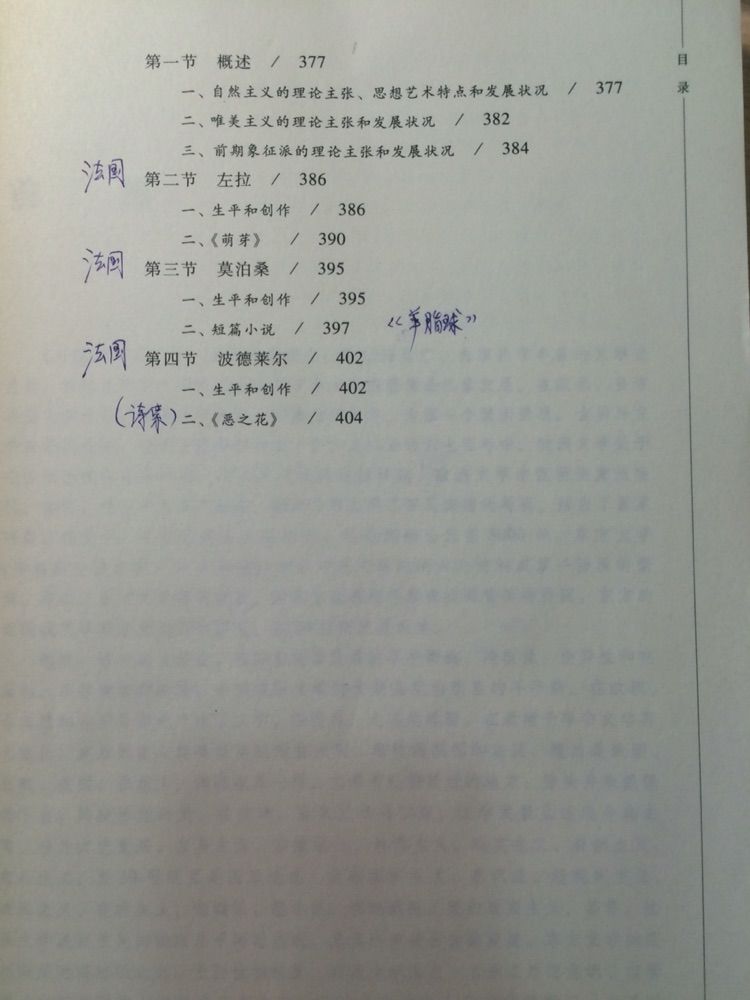 目录
第一节 概述 / 377
一、自然主义的理论主张、思想艺术特点和发展状况 / 377
二、唯美主义的理论主张和发展状况 / 382
三、前期象征派的理论主张和发展状况 / 384
法国 第二节 左拉 / 386
一、生平和创作 / 386
二、《萌芽》 / 390
法国 第三节 莫泊桑 / 395
一、生平和创作 / 395
二、短篇小说 / 397 《羊脂球》
法国 第四节 波德莱尔 / 402
一、生平和创作 / 402
(诗集) 二、《恶之花》 / 404